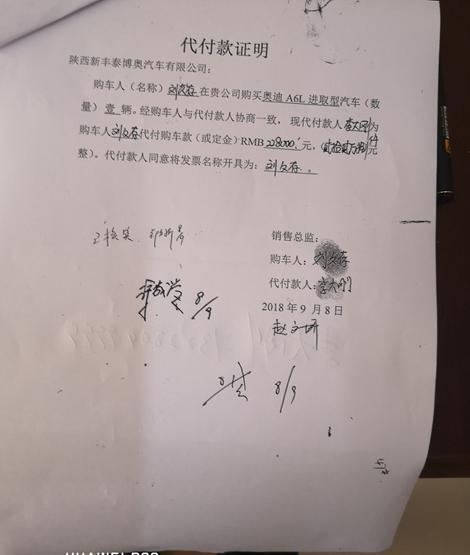 代付款证明
陕西新丰泰博奥汽车有限公司：
购车人（名称）刘文存在贵公司购买奥迪 A6L 进取型汽车（数
量）壹 辆。经购车人与代付款人协商一致，现代付款人李大刚为
购车人刘文存代付购车款（或定金）RMB 228000 元，（元
整）。代付款人同意将发票名称开具为：刘文存。
销售总监：
购车人：刘文存
代付款人：李大刚
2018 年 9 月 8 日
8/9
8/9